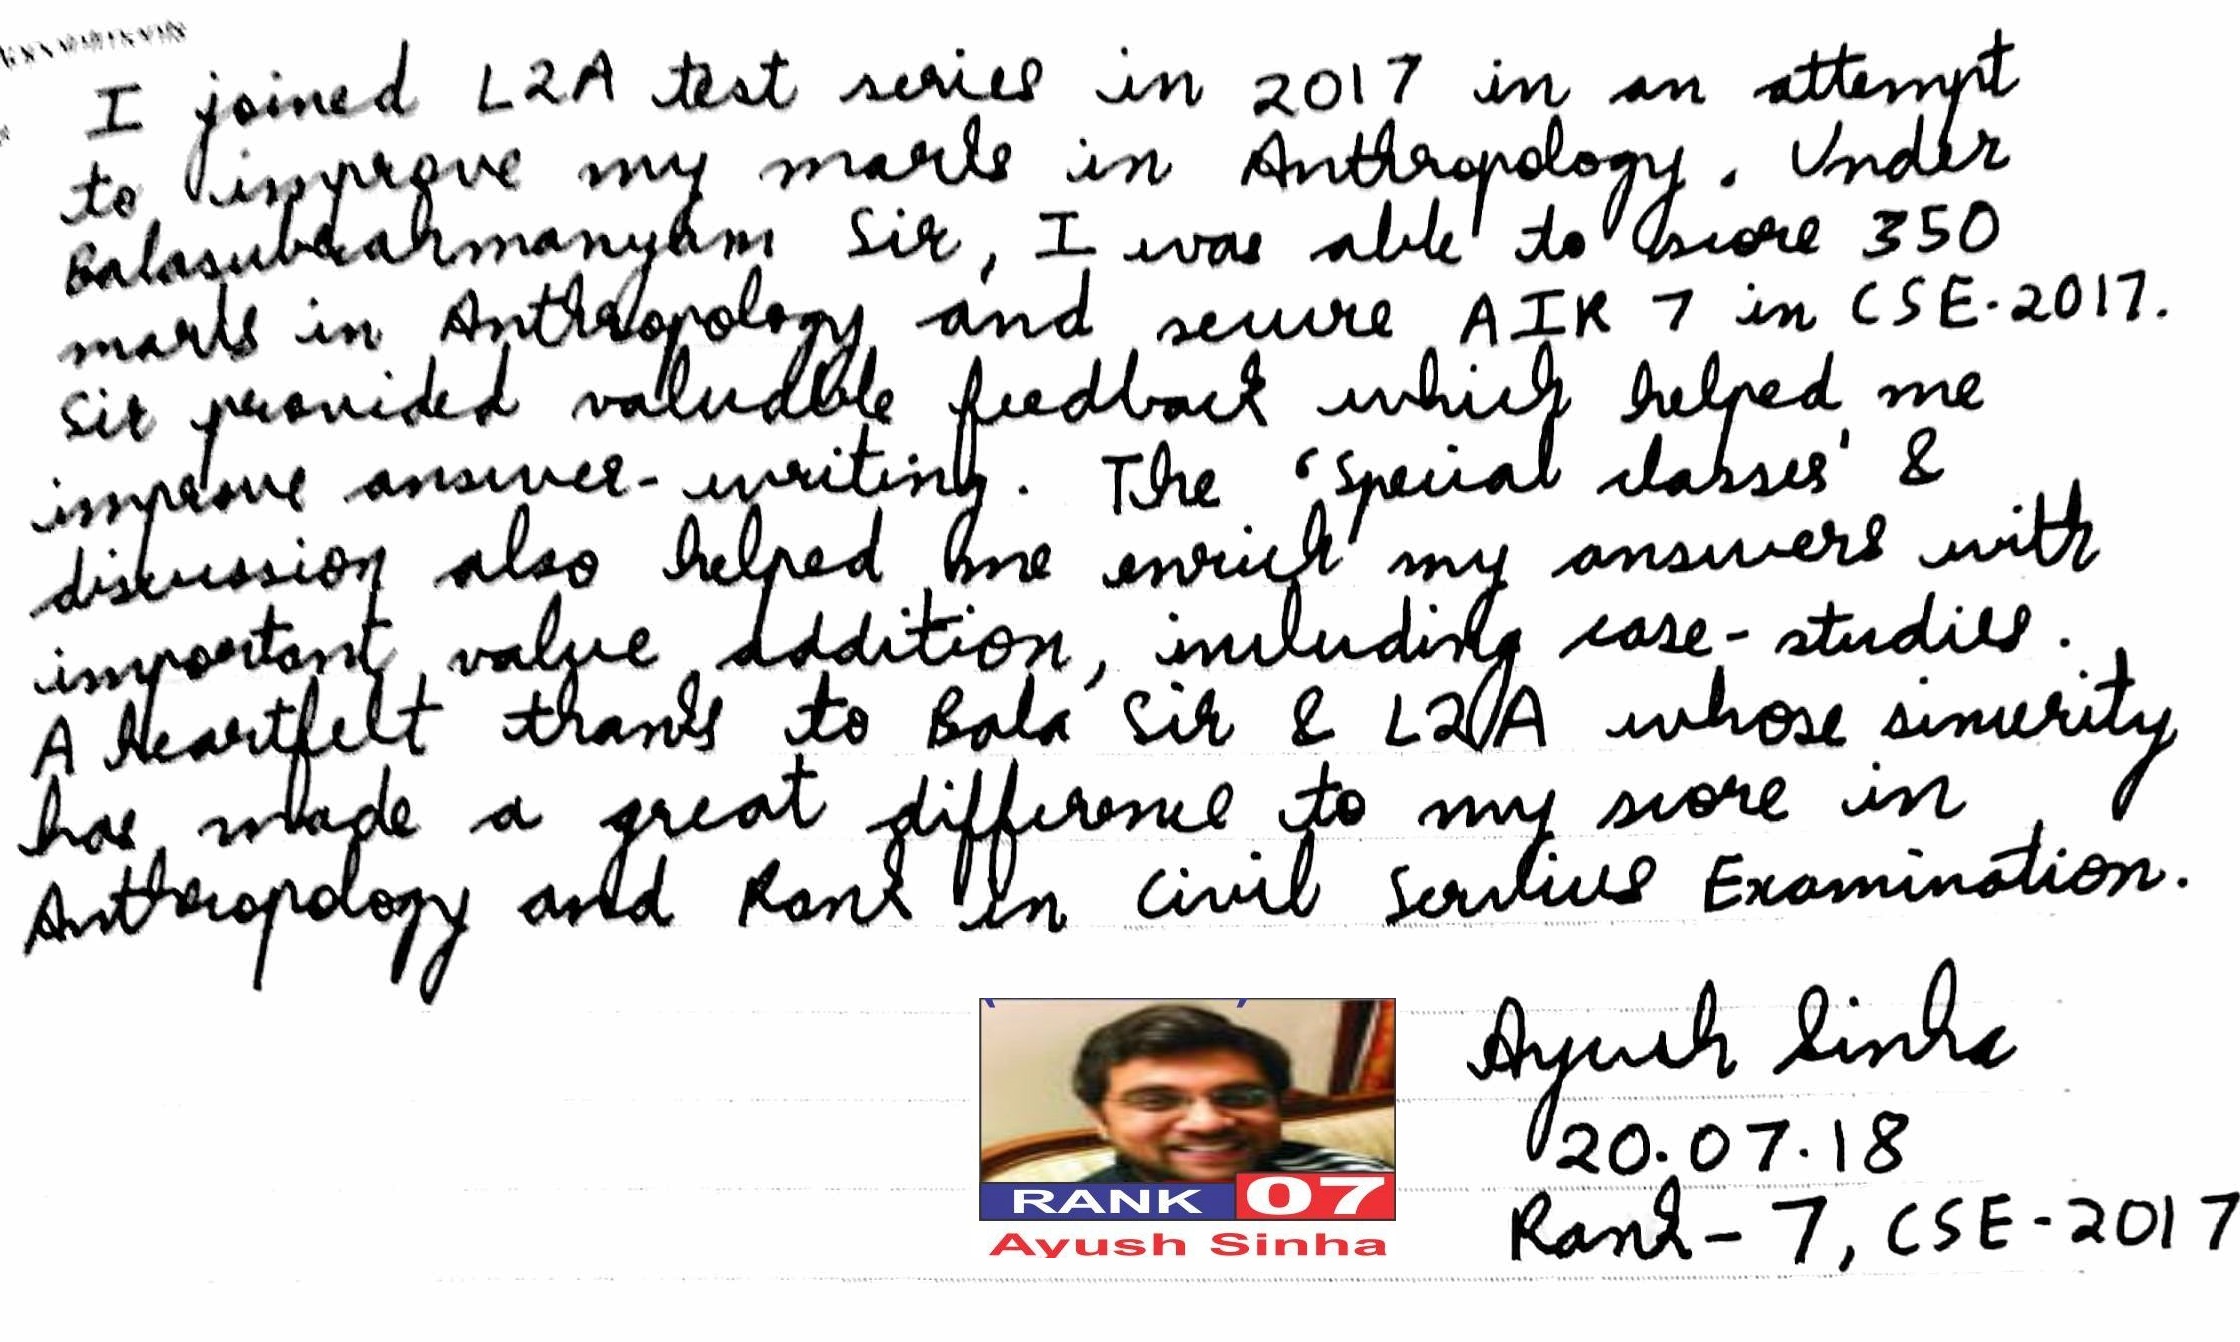 I joined L2A test series in 2017 in an attempt
to improve my marks in Anthropology. Under
Balasubrahmanyam Sir, I was able to score 350
marks in Anthropology and secure AIR 7 in CSE-2017.
Sir provided valuable feedback which helped me
improve answer-writing. The 'Special classes' &
discussion also helped me enrich my answers with
important value addition, including case-studies.
A heartfelt thanks to Bala Sir & L2A whose sincerity
has made a great difference to my score in
Anthropology and Rank in Civil Services Examination.
Ayush Sinha
20.07.18
Rank-7, CSE-2017
RANK 07
Ayush Sinha